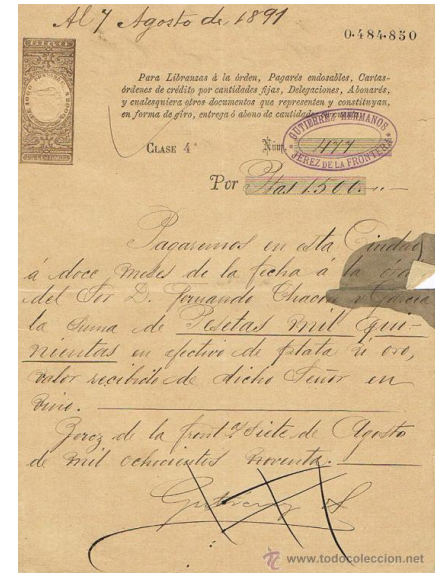 Al 7 Agosto de 1891
0.484.850
Para Libranzas á la órden, Pagarés endosables, Cartas-
órdenes de crédito por cantidades fijas, Delegaciones, Abonarés,
y cualesquiera otros documentos que representen y constituyan,
en forma de giro, entrega ó abono de cantidad en cuenta.
GUTIERREZ HERMANOS
CLASE 4ª Núm. 477
JEREZ DE LA FRONTERA
Por Ptas 1.500.
Pagaremos en esta Ciudad
á doce meses de la fecha á la
del Sor D. Fernando Chacón García
la suma de Pesetas mil qui-
nientas en efectivo de plata ú oro,
valor recibido de dicho Señor en
vino.
Jerez de la front siete de Agosto
de mil ochocientos noventa.
www.todocoleccion.net